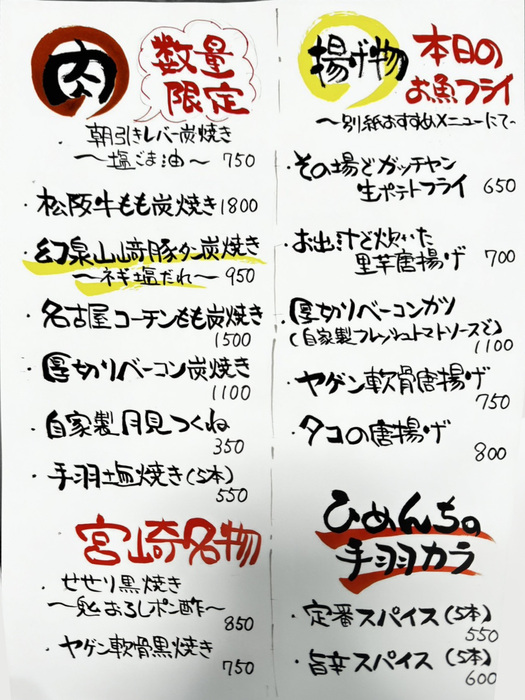 肉
数量
限定
・朝引きレバー炭焼き
〜塩ごま油〜 750
・松阪牛もも炭焼き 1800
・幻泉山崎豚タン炭焼き
〜ネギ塩だれ〜 950
・名古屋コーチンもも炭焼き
1500
・厚切りベーコン炭焼き
1100
・自家製月見つくね
350
・手羽塩焼き(5本)
550
宮崎名物
・せせり黒焼き
〜鬼おろしポン酢〜
850
・ヤゲン軟骨黒焼き
750
揚げ物
本日の
お魚フライ
〜別紙おすすめメニューにて〜
・その場でガッチャン
生ポテトフライ 650
・お出汁で炊いた
里芋唐揚げ 700
・厚切りベーコンカツ
(自家製フレッシュトマトソースで)
1100
・ヤゲン軟骨唐揚げ
750
・タコの唐揚げ
800
ひめんちの
手羽カラ
・定番スパイス(5本)
550
・旨辛スパイス(5本)
600